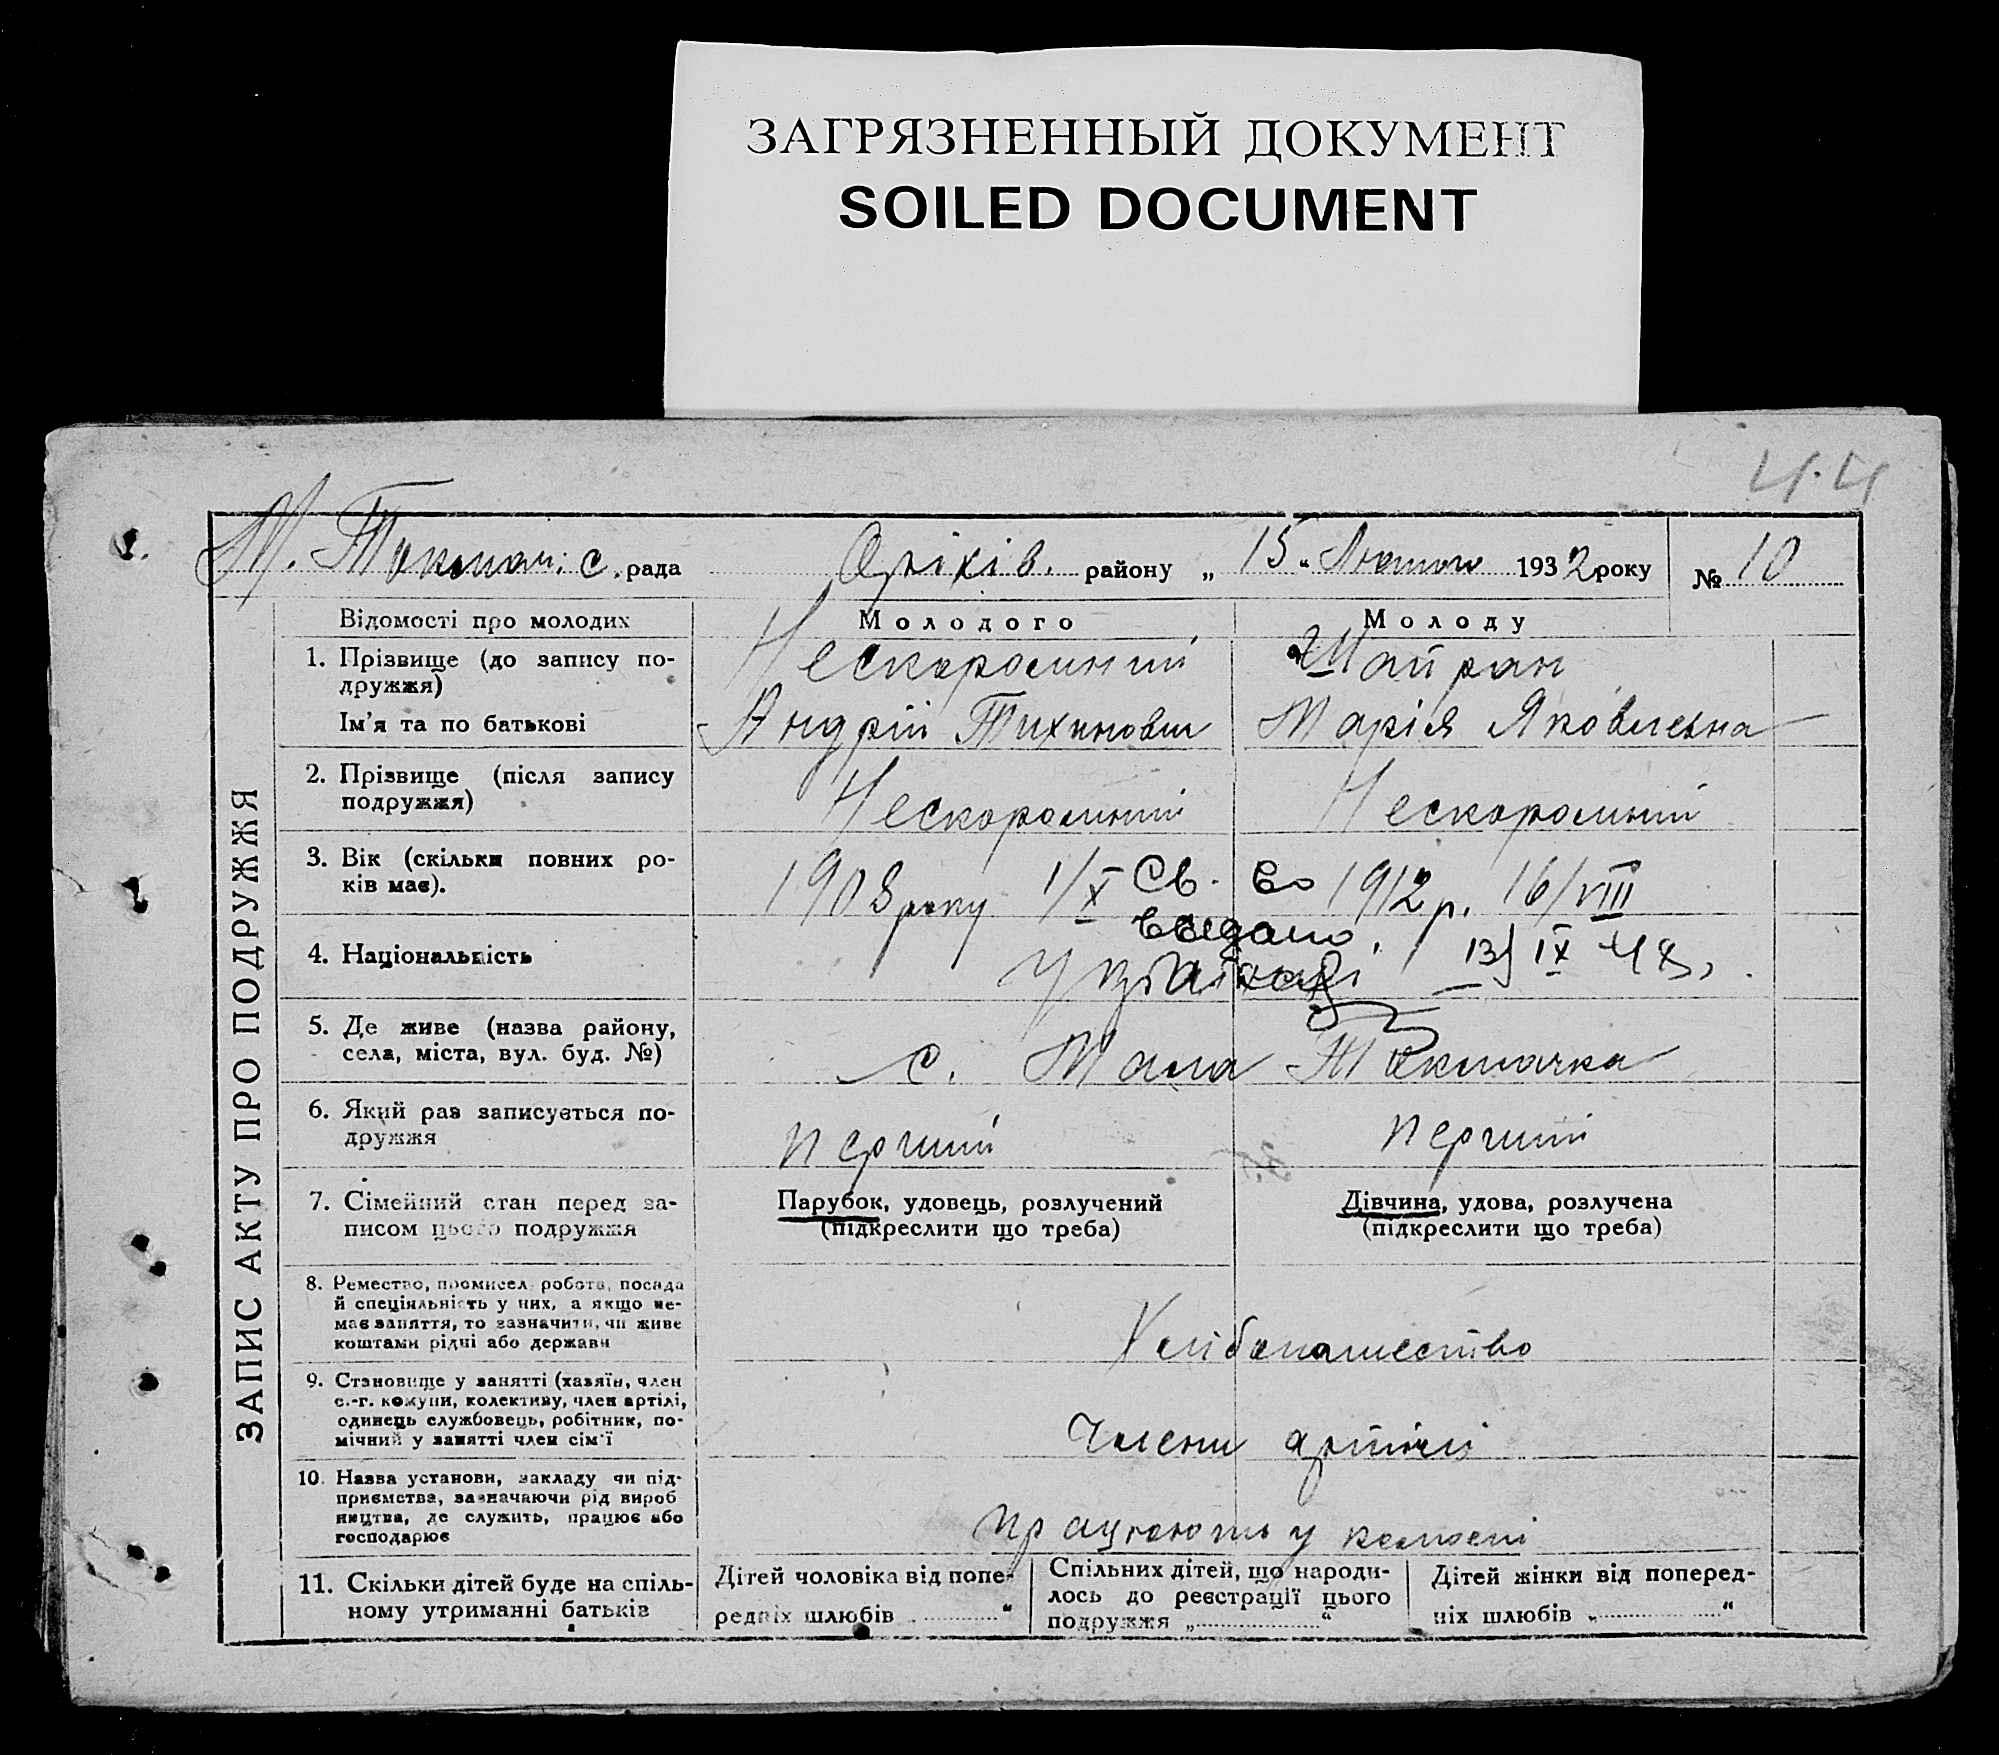 ЗАГРЯЗНЕННЫЙ ДОКУМЕНТ
SOILED DOCUMENT
44
М. Токмач. с. рада Оріхів. району „ 15 “ Лютого 1932 року № 10
ЗАПИС АКТУ ПРО ПОДРУЖЖЯ
Відомості про молодих Молодого Молоду
1. Прізвище (до запису по-
дружжя)
Нескоромний Шайран
Ім'я та по батькові Андрій Тихинович Марія Яковлевна
2. Прізвище (після запису
подружжя)
Нескоромний Нескоромний
3. Вік (скільки повних ро-
ків має).
1908 року 1/X 1912 р. 16/VIII
Св-во
выдано, 13/IX 48
4. Національність Українські
5. Де живе (назва району,
села, міста, вул. буд. №)
с. Мала Токмачка
6. Який раз записується по-
дружжя
перший перший
7. Сімейний стан перед за-
писом цього подружжя
Парубок, удовець, розлучений
(підкреслити що треба)
Дівчина, удова, розлучена
(підкреслити що треба)
8. Ремество, промисел, робота, посада
й спеціяльність у них, а якщо не-
має заняття, то зазначити, чи живе
коштами рідні або держави
Хлібопашество
9. Становище у занятті (хазяїн, член
с.-г. комуни, колективу, член артілі,
одинець службовець, робітник, по-
мічний у занятті член сім'ї
Члени артілі
10. Назва установи, закладу чи під-
приємства, зазначаючи рід вироб
ництва, де служить, працює або
господарює
працюють у колгоспі
11. Скільки дітей буде на спіль-
ному утриманні батьків
Дітей чоловіка від попе-
редніх шлюбів „ “
Спільних дітей, що народи-
лось до реєстрації цього
подружжя „ “
Дітей жінки від поперед-
ніх шлюбів „ “